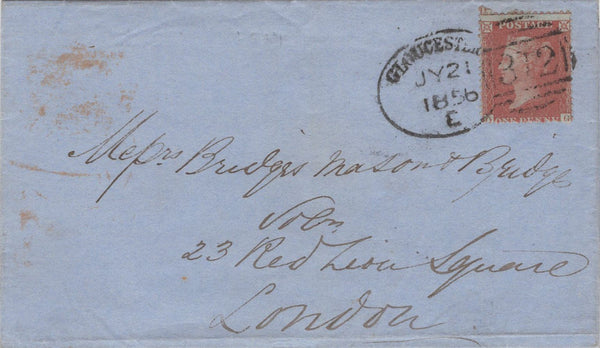 POSTAGE
GLOUCESTER
JY 21
1856
E
312
ONE PENNY
G
Messrs Bridges Mason & Bridges
Solrs
23 Red Lion Square
London